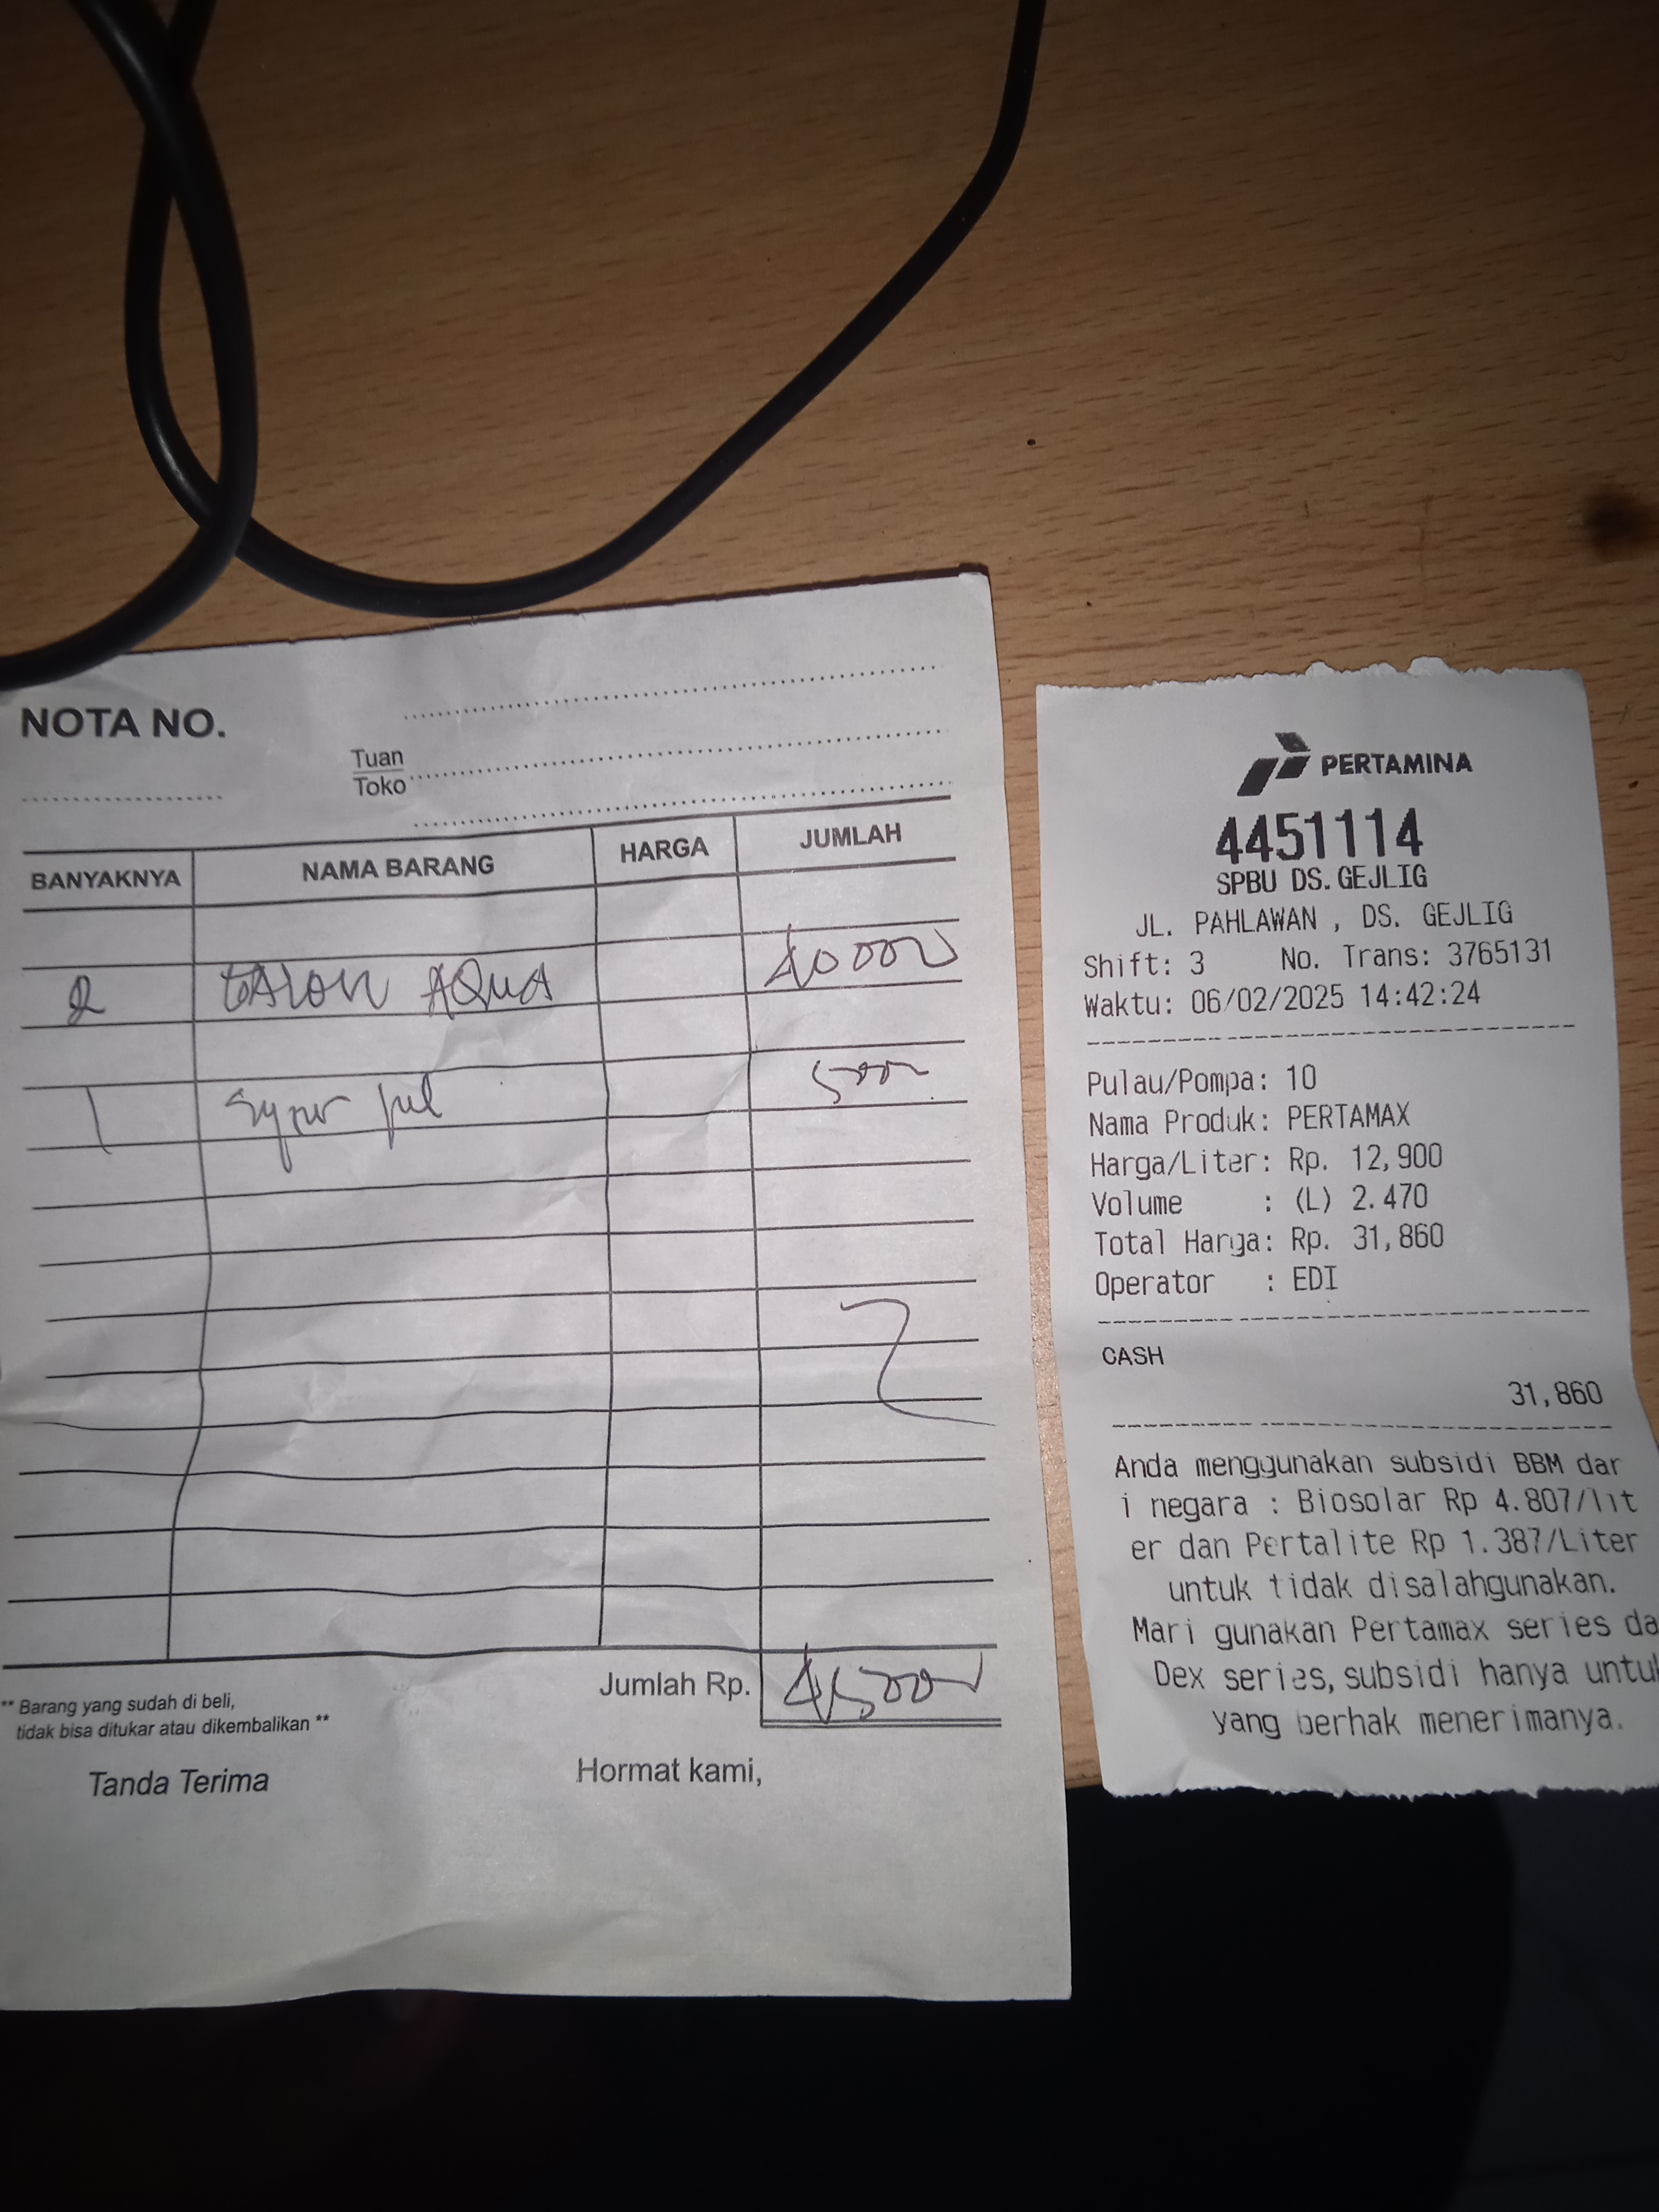 NOTA NO.
Tuan
Toko
BANYAKNYA NAMA BARANG HARGA JUMLAH
2 GALON AQUA 40000
1 5000
Jumlah Rp. 45000
** Barang yang sudah di beli,
tidak bisa ditukar atau dikembalikan **
Tanda Terima Hormat kami,
PERTAMINA
4451114
SPBU DS. GEJLIG
JL. PAHLAWAN , DS. GEJLIG
Shift: 3 No. Trans: 3765131
Waktu: 06/02/2025 14:42:24
Pulau/Pompa: 10
Nama Produk: PERTAMAX
Harga/Liter: Rp. 12,900
Volume : (L) 2.470
Total Harga: Rp. 31,860
Operator : EDI
CASH
31,860
Anda menggunakan subsidi BBM dar
i negara : Biosolar Rp 4.807/lit
er dan Pertalite Rp 1.387/Liter
untuk tidak disalahgunakan.
Mari gunakan Pertamax series da
Dex series, subsidi hanya untuk
yang berhak menerimanya.